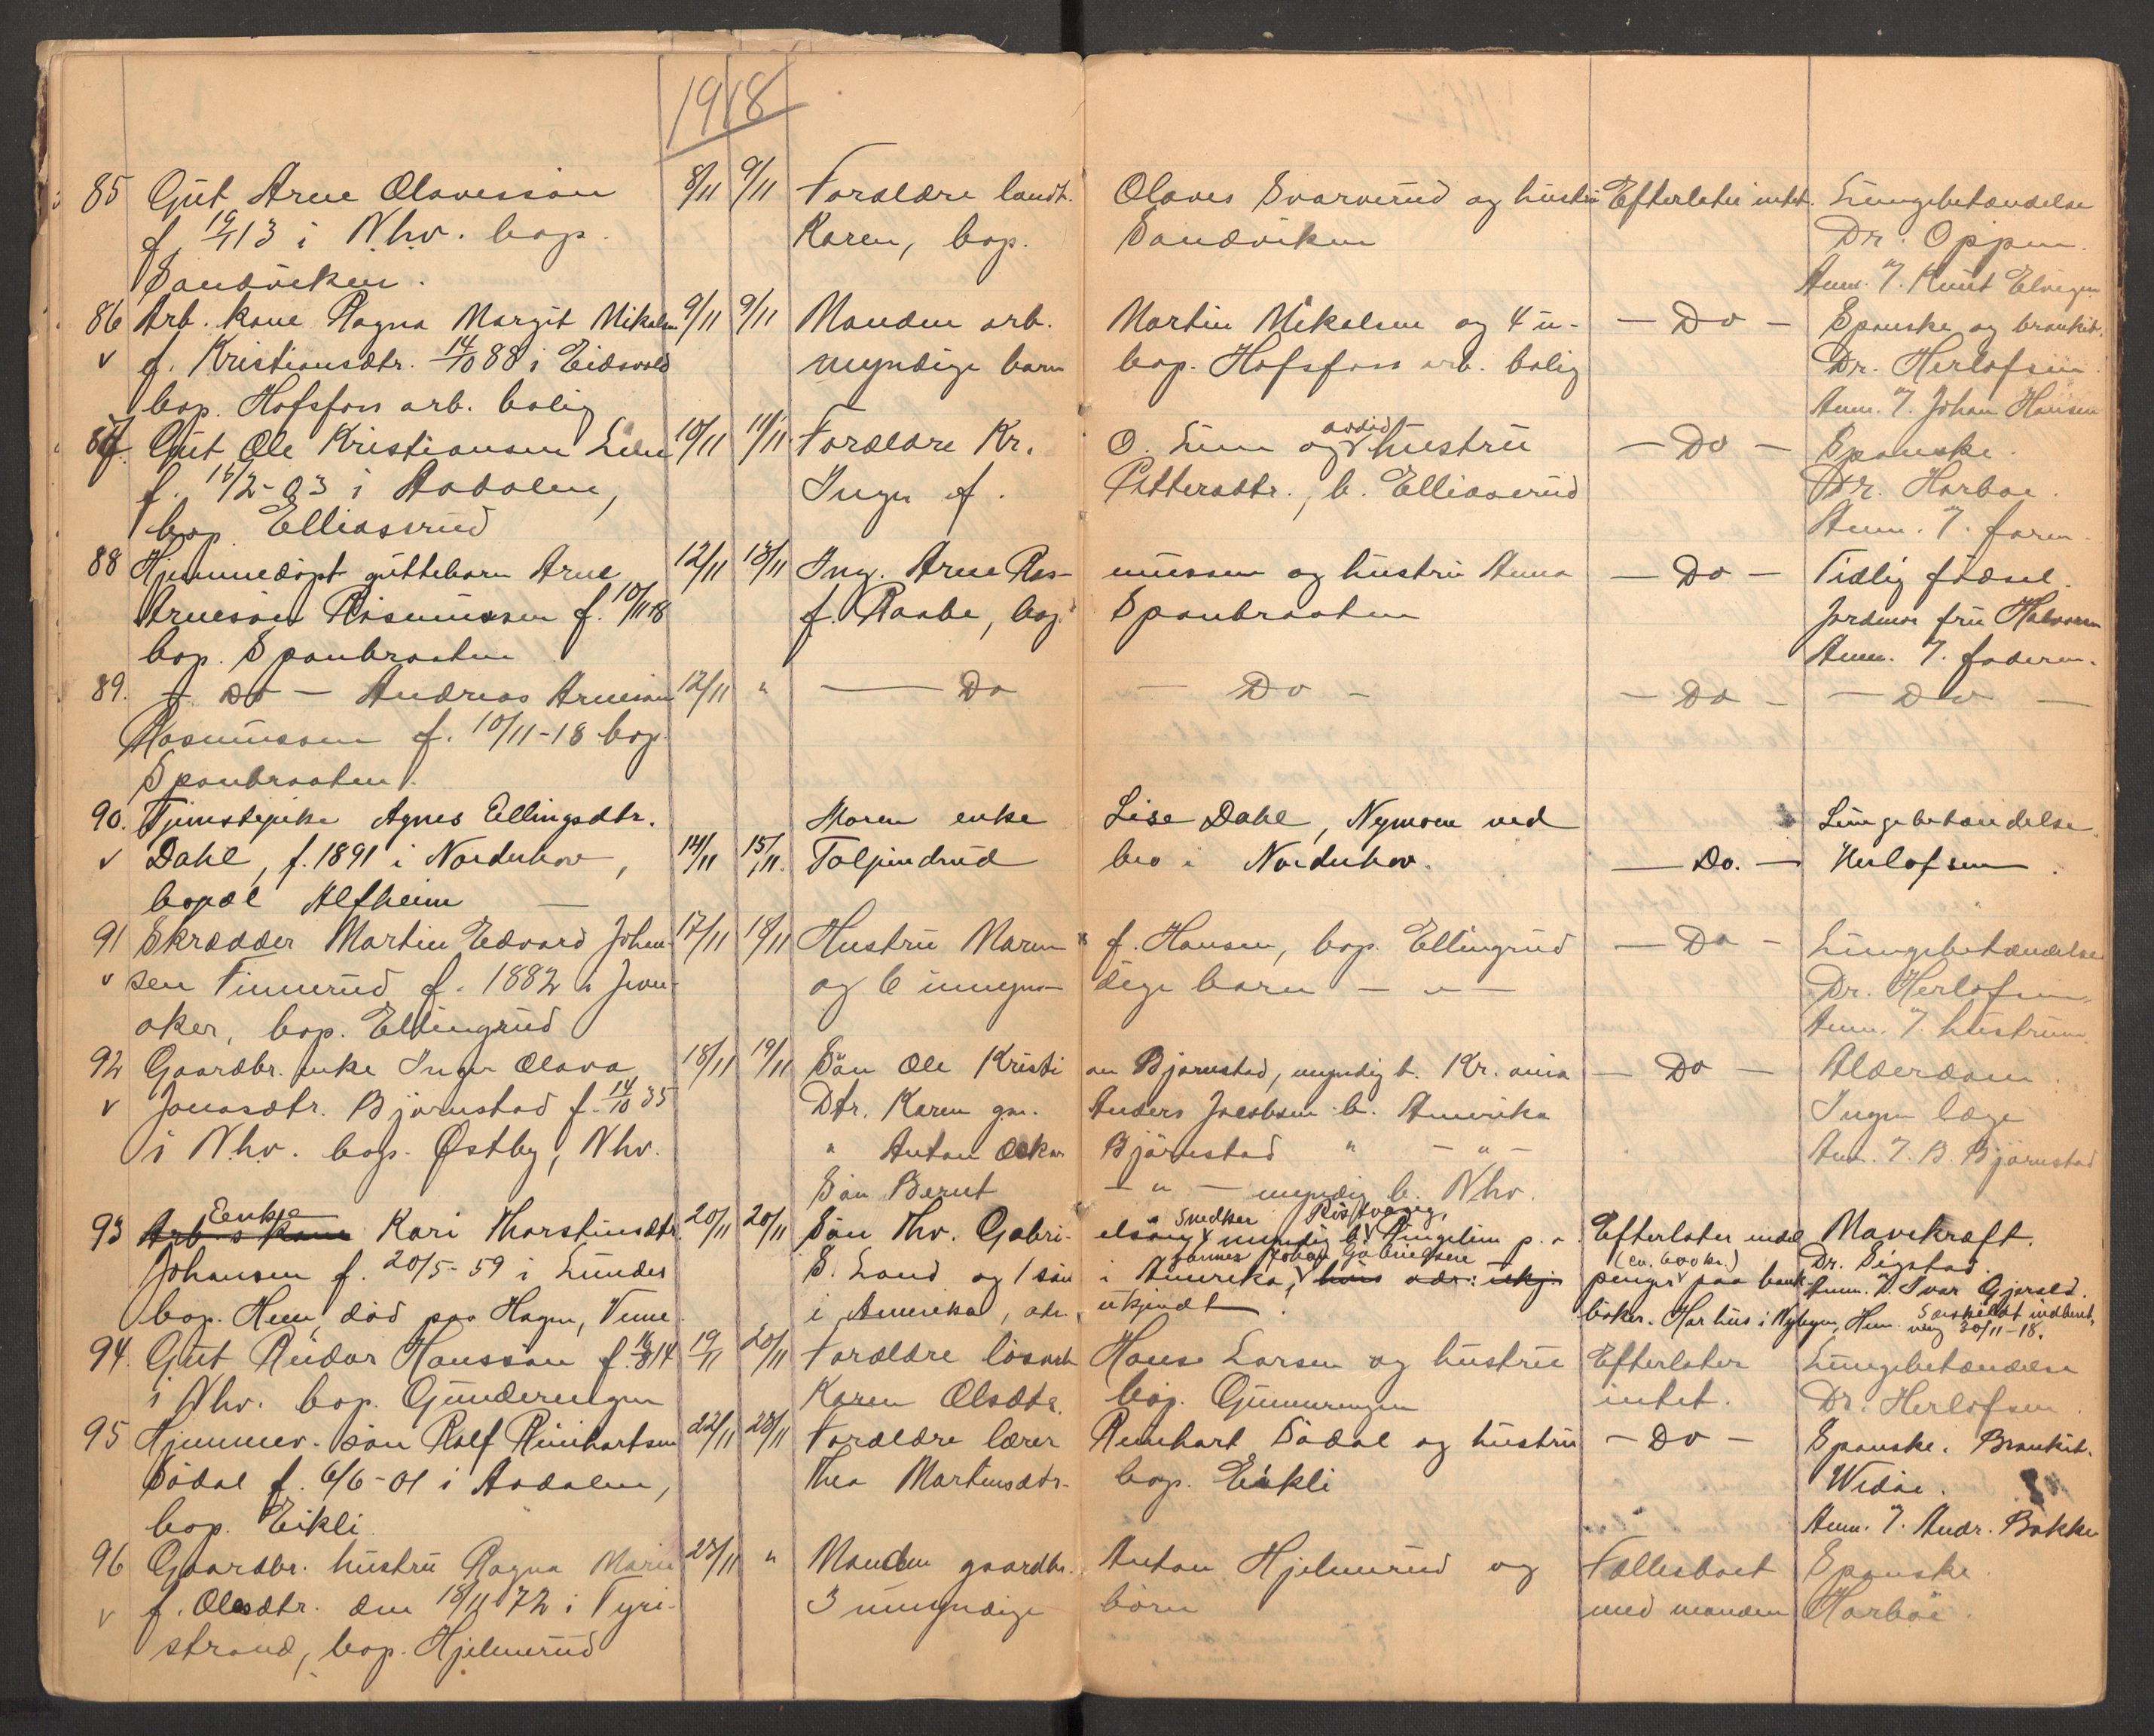 1918
85 Gut Arne Olavessøn 8/11 9/11 Forældre landt. Olaves Svarverud og hustru Efterlater intet. Lungebetændelse
f. 19/1 13 i Nhv. bop. Karen, bop. Sandviken Dr. Oppen.
Sandviken. Anm. 7. Knut Elvigen
86 Arb. kone Ragna Margit Mikalsen 9/11 9/11 Manden arb. Martin Mikalsen og 4 u- — Do — Spanske og bronkit.
v f. Kristiansdtr. 14/10 88 i Eidsvold myndige barn bop. Hofsfoss arb. bolig Dr. Herlofsen
bop. Hofsfoss arb. bolig Anm. 7. Johan Hansen
87 Gut Ole Kristiansen Lien 10/11 11/11 Forældre Kr. O. Lien og avdød hustru — Do — Spanske.
f. 15/2-03 i Aadalen, Inga f. Pettersdtr., b. Elliasrud Dr. Harboe.
bop. Elliasrud Anm. 7. faren
88 Hjemmedøpt guttebarn Arne 12/11 13/11 Ing. Arne Ras- mussen og hustru Anna — Do — Tidlig fødsel.
Arnesøn Rasmussen f. 10/11 18 f. Raabe, bop. Sponbraaten Jordmor fru Halvorsen
bop. Sponbraaten Anm. 7. faderen.
89. — Do — Andreas Arnesøn 12/11 " — Do — Do — — Do — — Do —
Rasmussen f. 10/11-18 bop.
Sponbraaten.
90. Tjenestepike Agnes Ellingsdtr. Moren enke Lise Dahl, Nymoen ved Lungebetændelse.
v Dahl, f. 1891 i Norderhov, 14/11 15/11. Tolpinrud bro i Norderhov. — Do. — Herlofsen.
bopæl Alfheim —
91 Skrædder Martin Edvard Johan- 17/11 18/11 Hustru Maren f. Hansen, bop. Ellingrud — Do — Lungebetændelse
v sen Finnerud f. 1882 i Jevn- og 6 umyn- dige barn — " — Dr. Herlofsen,
aker, bop. Ellingrud Anm. 7. hustruen.
92 Gaardbr. enke Inger Olava 18/11 19/11 Søn Ole Kristi an Bjørnstad, myndig b. Kr.ania — Do — Alderdom.
v Jonasdtr. Bjørnstad f. 14/10 35 Dtr. Karen gm. Anders Jacobsen b. Amerika Ingen læge
i Nhv. bop. Østby, Nhv. " Anton Oskar Bjørnstad " — " — Anm. 7. B. Bjørnstad
Søn Bernt — " — myndig b. Nhv.
Enkje snedker
93 Arb.s kone Kari Thorstensdtr. 20/11 20/11 Søn Thv. Gabri- elsen v myndig b. v Ringelien p. a. Efterlater indel Mavekræft.
Johannes Johan Gabrielsen (ca. 600 kr.) Dr. Sigstad.
Johansen f. 20/5-59 i Lunder S. Land og 1 søn i Amerika, v hvis adr: ukj: penger v paa bank- Anm. 7. Ivar Gjersld.
bop. Hen, død paa Hagen, Veme. i Amerika, adr. ukjendt. bøker. Har hus i Nybyen, Hen. Særskildt indberet- ning 30/11-18.
94. Gut Reidar Hanssøn f. 16/8 14 19/11 20/11 Forældre løsarb. Hans Larsen og hustru Efterlater Lungebetændelse
i Nhv. bop. Gunderengen Karen Olsdtr. bop. Gunnerengen intet. Dr. Herlofsen.
95 Hjemmev. søn Rolf Reinhartsen 22/11 23/11 Forældre lærer Reinhart Sødal og hustru — Do — Spanske. Bronkit.
Sødal f. 6/6-01 i Aadalen, Thea Martinsdtr. bop. Eikli Widøe.
bop. Eikli Anm. 7. Andr. Bakke
96 Gaardbr. hustru Ragna Marie 23/11 " Manden gaardbr. Anton Hjelmerud og Fællesboet Spanske.
v f. Olesdtr. den 18/11 72 i Tyri- 3 umyndige børn med manden Harboe.
strand, bop. Hjelmerud